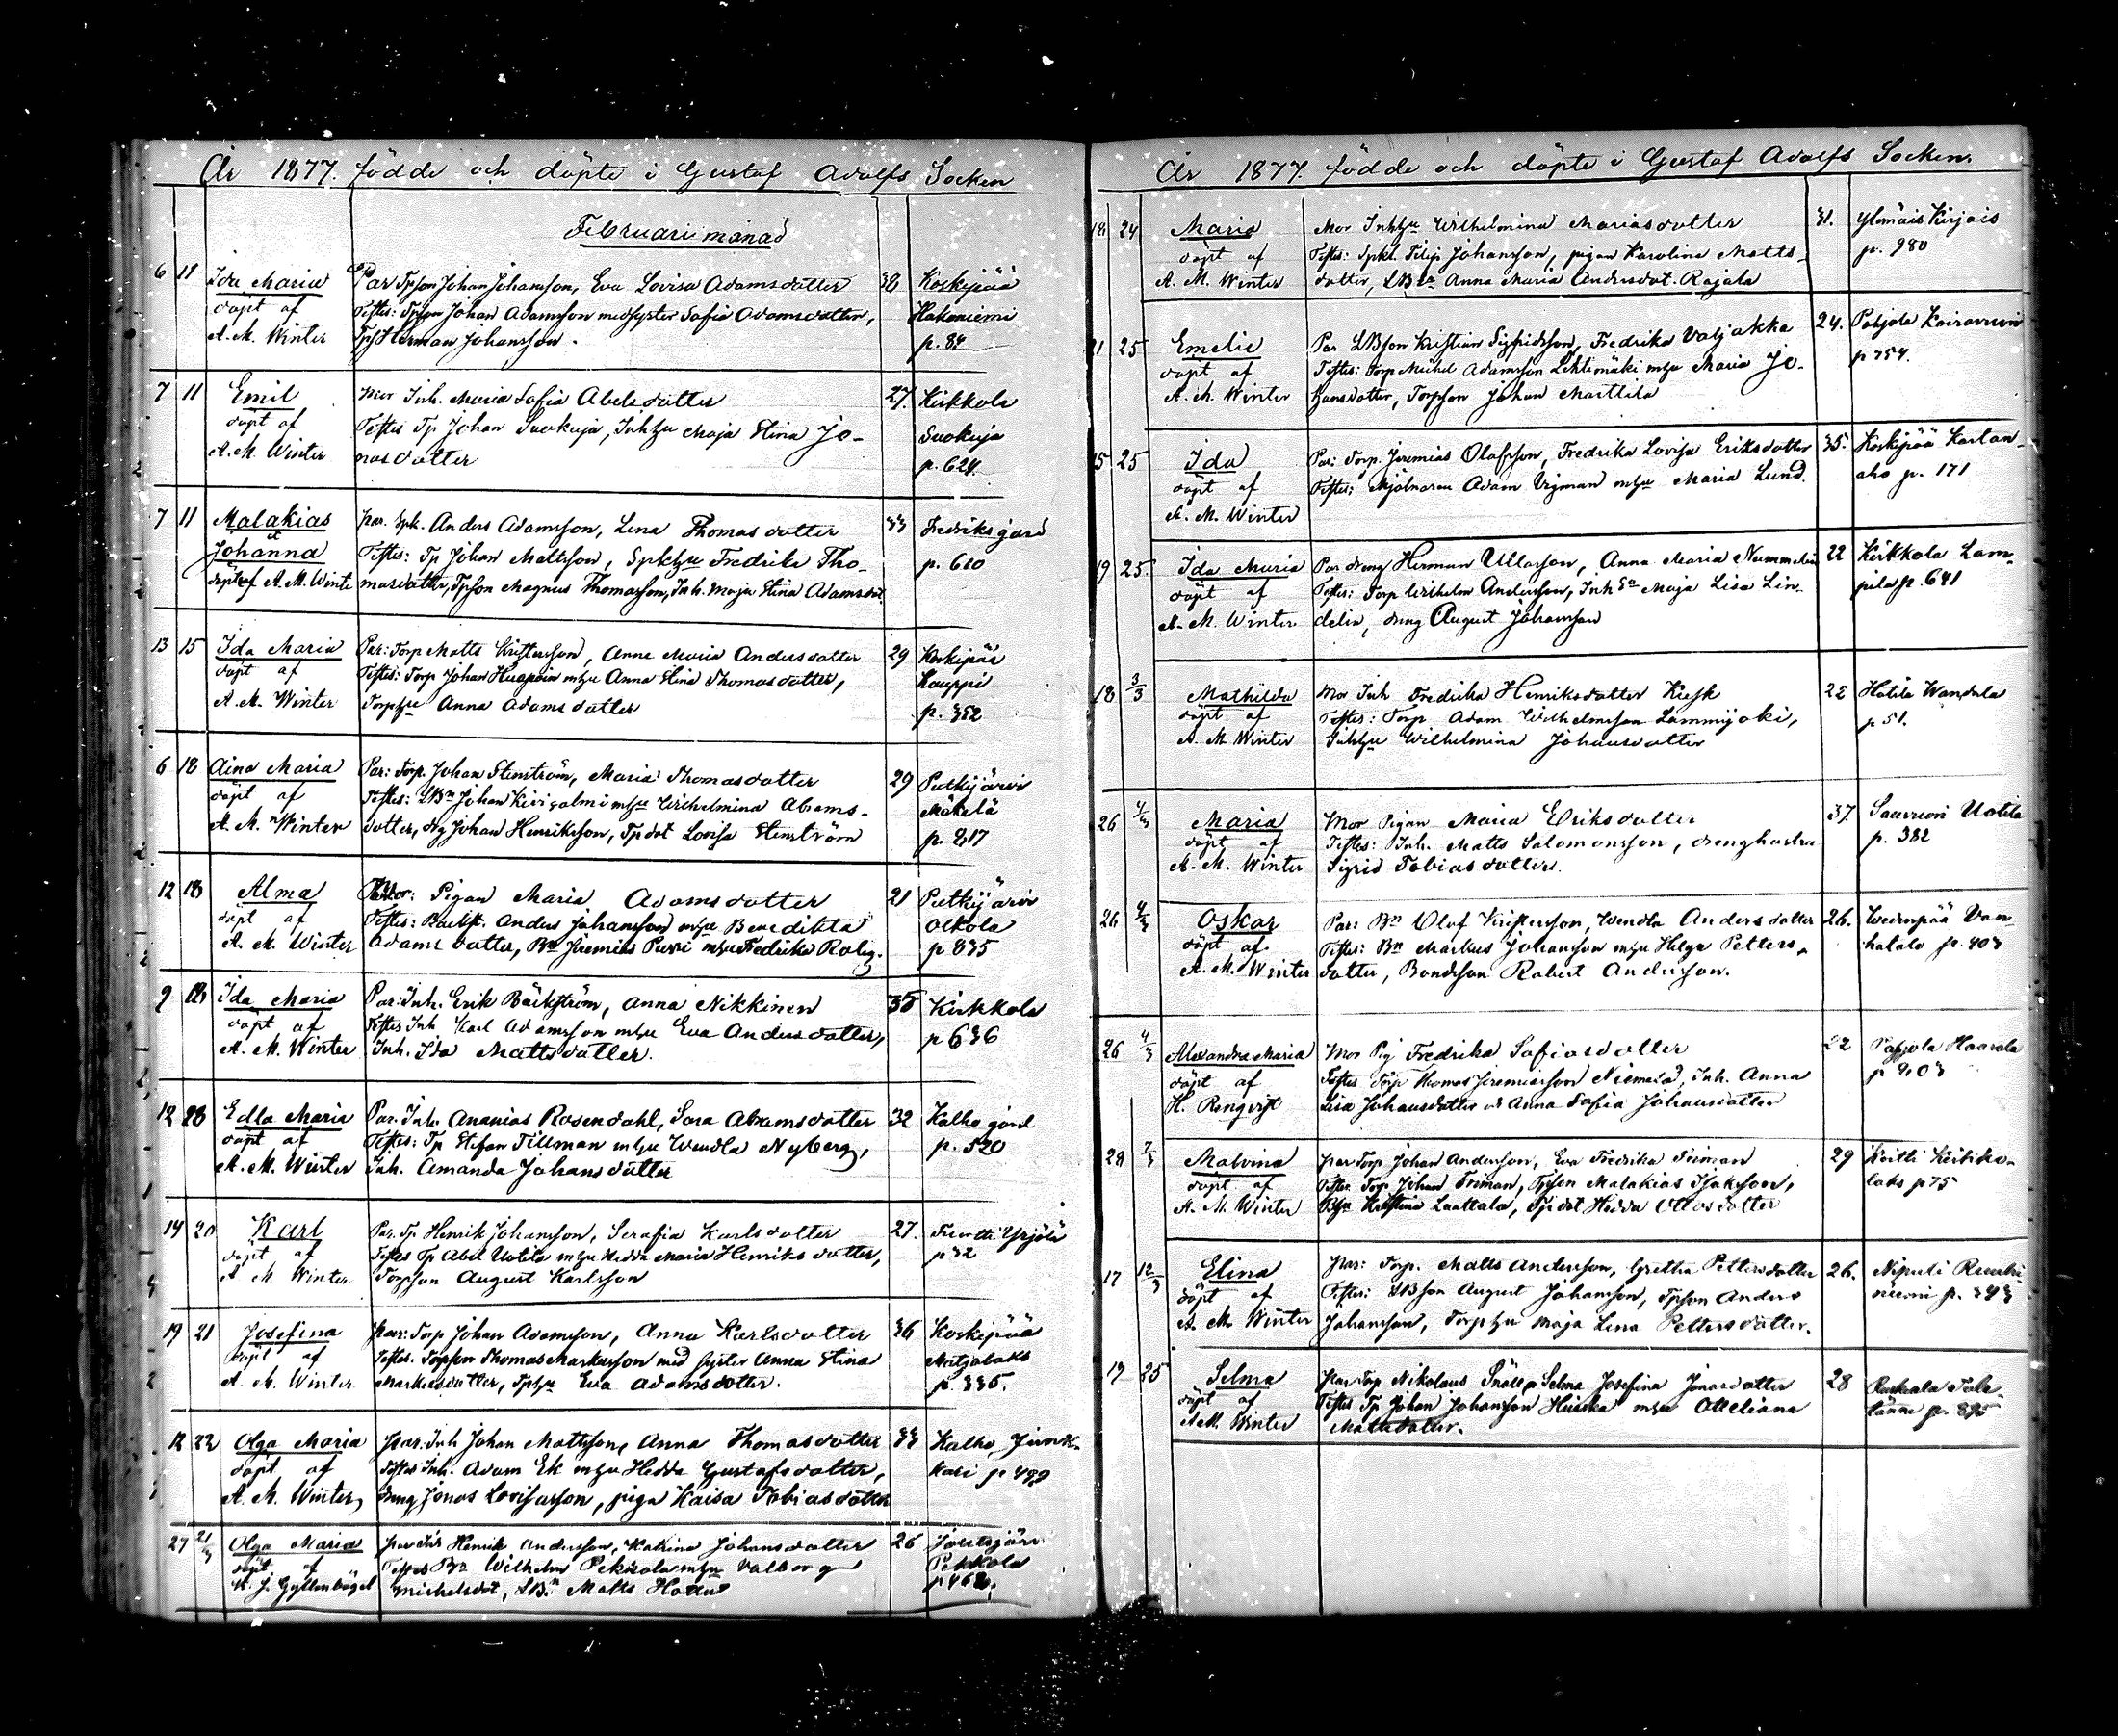 År 1877. födde och döpte i Gustaf Adolfs Socken
Februari månad
6 11 Ida Maria Par Tpson Johan Johansson, Eva Lovisa Adamsdotter 38 Koskipää
döpt af Testes: Tpson Johan Adamsson med syster Sofia Adamsdotter, Hakoniemi
A. M. Winter Tps Herman Johansson. p. 84
7 11 Emil Mor Inh. Maria Sofia Abelsdotter 27. Kirkkola
döpt af Testes Tp Johan Suokuja, Inhhu Maja Stina Jo- Suokuja
A. M. Winter nasdotter p. 624
7 11 Malakias Par. Spk. Anders Adamsson, Lena Thomasdotter 33 Fredriksgård
&
Johanna Testes: Tp Johan Mattsson, Spkhu Fredrika Tho- p. 610
döpte af A. M. Winte masdotter, Tpson Magnus Thomasson, Inh. Maja Stina Adamsdot.
13 15 Ida Maria Par: Torp Matts Kristersson, Anna Maria Andersdotter 29 Koskipää
döpt af Testes: Torp Johan mhu Anna Stina Thomasdotter, Kauppi
A. M. Winter Torphu Anna Adamsdotter p. 352
6 18 Aina Maria Par: Torp. Johan Stenström, Maria Thomasdotter 29 Putkijärvi
döpt af Testes: LBn Johan Kivisalmi mhu Wilhelmina Abrams- Mäkelä
A. M. Winter dotter, drg Johan Henriksson, Tpdot Lovisa Stenström p. 817
12 18 Alma Mor: Pigan Maria Adamsdotter 21 Putkijärvi
döpt af Testes: Anders Johansson mhu Benedikta Olkola
A. M. Winter Adamsdotter, Bn Jeremias Purri mhu Fredrika Rolig. p 835
9 18 Ida Maria Par: Inh. Erik Bäckström, Anna Nikkinen 35 Kirkkola
döpt af Testes Inh Karl Adamsson mhu Eva Andersdotter, p 636
A. M. Winter Inh. Ida Mattsdotter.
12 28 Edla Maria Par. Inh. Ananias Rosendahl, Sara Abramsdotter 32 Kalho gård
döpt af Testes: Tp Stefan Tillman mhu Wendla Nyberg, p. 520
A. M. Winter Inh. Amanda Johansdotter
14 20 Karl Par. Tp Henrik Johansson, Serafia Karlsdotter 27. Yrjölä
döpt af Testes Tp Abel Uotila mhu Hedda Maria Henriksdotter, p 32
A. M. Winter Torpson August Karlsson
19 21 Josefina Par: Torp Johan Adamsson, Anna Karlsdotter 36 Koskipää
döpt af Testes. Torpson Thomas Markusson med syster Anna Stina Matjalaks
A. M. Winter Markusdotter, Tphu Eva Adamsdotter. p. 335.
12 22 Olga Maria Par. Inh Johan Mattsson, Anna Thomasdotter 33 Kalho, Jink-
döpt af Testes Inh. Adam Ek mhu Hedda Gustafsdotter, kari p 499
A. M. Winter, dreng Jonas Lovisasson, piga Kaisa Tobiasdotter
27 21/3 Olga Maria Par Henrik Andersson, Katrina Johansdotter 26 Joutsjärvi
döpt af Testes Bn Wilhelm Pekkola mhu Valborg Pekkola
Gyllenbögel Michelsdot, LBn Matts p 462.
År 1877. födde och döpte i Gustaf Adolfs Socken.
18 24 Maria Mor Inhhu Wilhelmina Mariasdotter 31. Ylimäis Kirjais
döpt af Testes: Spkl. Filip Johansson, pigan Karolina Matts- p. 980
A. M. Winter dotter, LBda Anna Maria Andersdot. Rajala
21 25 Emelie Par LBson Kristian Sigfridsson, Fredrika Valjakka 24. Pohjola Koiravuori
döpt af Testes: Torp Michel Adamsson Lehtimäki mhu Maria Jo- p 754.
A. M. Winter hansdotter, Torpson Johan Marttila
15 25 Ida Par: Torp. Jeremias Olofsson, Fredrika Lovisa Eriksdotter 35. Koskipää Kartan-
döpt af Testes: Mjölnaren Adam Vigman mhu Maria Lund. aho p. 171
A. M. Winter
19 25. Ida Maria Par dreng Herman Ullasson, Anna Maria Nummelin 22 Kirkkola Lam-
döpt af Testes: Torp Wilhelm Andersson, Inh Maja Lisa Lin- pila p. 641
A. M. Winter delin, dreng August Johansson
18 3/3 Mathilda Mor Inh Fredrika Henriksdotter Kiesk 22 Hotila Wandala
döpt af Testes: Torp Adam Wilhelmsson Lammijoki, p 51.
A. M Winter Inhhu Wilhelmina Johansdotter
26 4/3 Maria Mor Pigan Maria Eriksdotter 37 Saavuori Uotila
döpt af Testes: Inh. Matts Salomonsson, drenghustru p. 382
A. M. Winter Sigrid Tobiasdotter.
26 4/3 Oskar Par: Bn Olof Kristersson, Wendla Andersdotter 26. Wedenpää Van-
döpt af Testes: Bn Markus Johansson mhu Helga Petters- halalo p. 403
A. M. Winter dotter, Bondeson Robert Andersson.
26 4/3 Alexandra Maria Mor Pig Fredrika Sofiasdotter 22 Pohjola Haarala
döpt af Testes Torp Thomas Jeremiasson Niemelä, Inh. Anna p 203
H. Renqvist Lisa Johansdotter o Anna Sofia Johansdotter
28 7/3 Malvina Par Torp Johan Andersson, Eva Fredrika Friman 29
döpt af Testes Torp Johan Friman, Tpson Malakias Isaksson, laks p 75
A. M. Winter Kristina Laattala, Tpdot Hedda Ottosdotter
17 12/3 Elina Par: Torp. Matts Andersson, Gretha Pettersdotter 26. Nipuli
döpt af Testes: LBson August Johansson, Tpson Anders niemi p. 343
A. M. Winter Johansson, Torphu Maja Lena Pettersdotter.
19 25 Selma Par Torp Nikolaus Snäll, Selma Josefina Jonasdotter 28
döpt af Testes Tp Johan Johansson mhu Otteliana p. 895
A. M. Winter Mattsdotter.